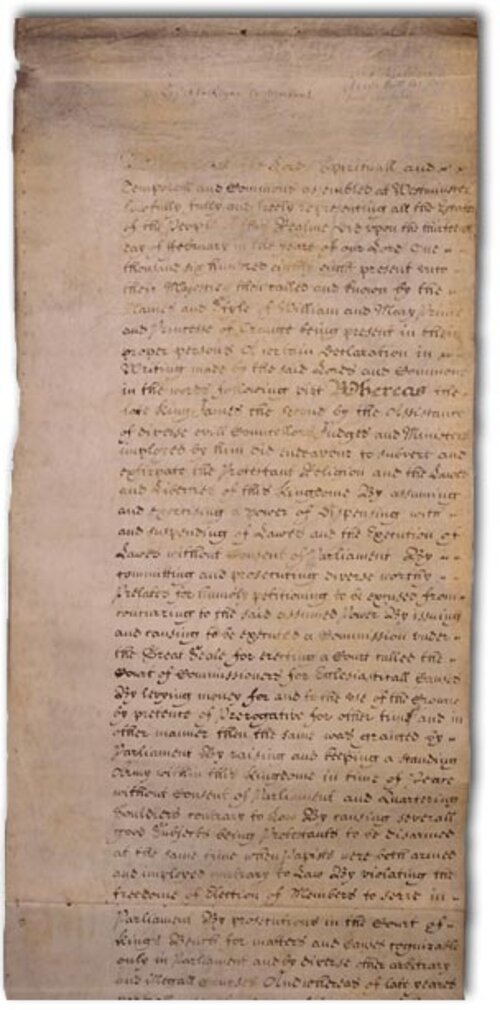 the Lords Spirituall and
Temporall and Commons assembled at Westminster
lawfully fully and freely representing all the Estates
of the People of this Realme did upon the thirteenth
day of February in the yeare of our Lord One
thousand six hundred eighty eight present unto
their Majesties then called and known by the
Names and Stile of William and Mary Prince
and Princesse of Orange being present in their
proper persons A certain Declaration in
Writing made by the said Lords and Commons
in the words following vizt Whereas the
late King James the second by the Assistance
of diverse evill Councellors Judges and Ministers
imployed by him did endeavour to subvert and
extirpate the Protestant Religion and the Lawes
and Liberties of this Kingdome By assuming
and exercising a power of Dispensing with
and suspending of Lawes and the Execution of
Lawes without Consent of Parliament By
committing and prosecuting diverse worthy
Prelates for humbly petitioning to be excused from
concurring to the said assumed Power By issuing
and causing to be executed a Commission under
the Great Seale for erecting a Court called the
Court of Commissioners for Ecclesiasticall Causes
By levying money for and to the use of the Crowne
by pretence of Prerogative for other time and in
other manner then the same was granted by
Parliament By raising and keeping a standing
Army within this Kingdome in time of Peace
without Consent of Parliament and Quartering
Souldiers contrary to Law By causing severall
good Subjects being Protestants to be disarmed
at the same time when Papists were both armed
and imployed contrary to Law By violating the
freedome of Election of Members to serve in
Parliament By prosecutions in the Court of
Kings Bench for matters and Causes cognizable
only in Parliament and by diverse other arbitrary
and illegall courses And whereas of late yeares